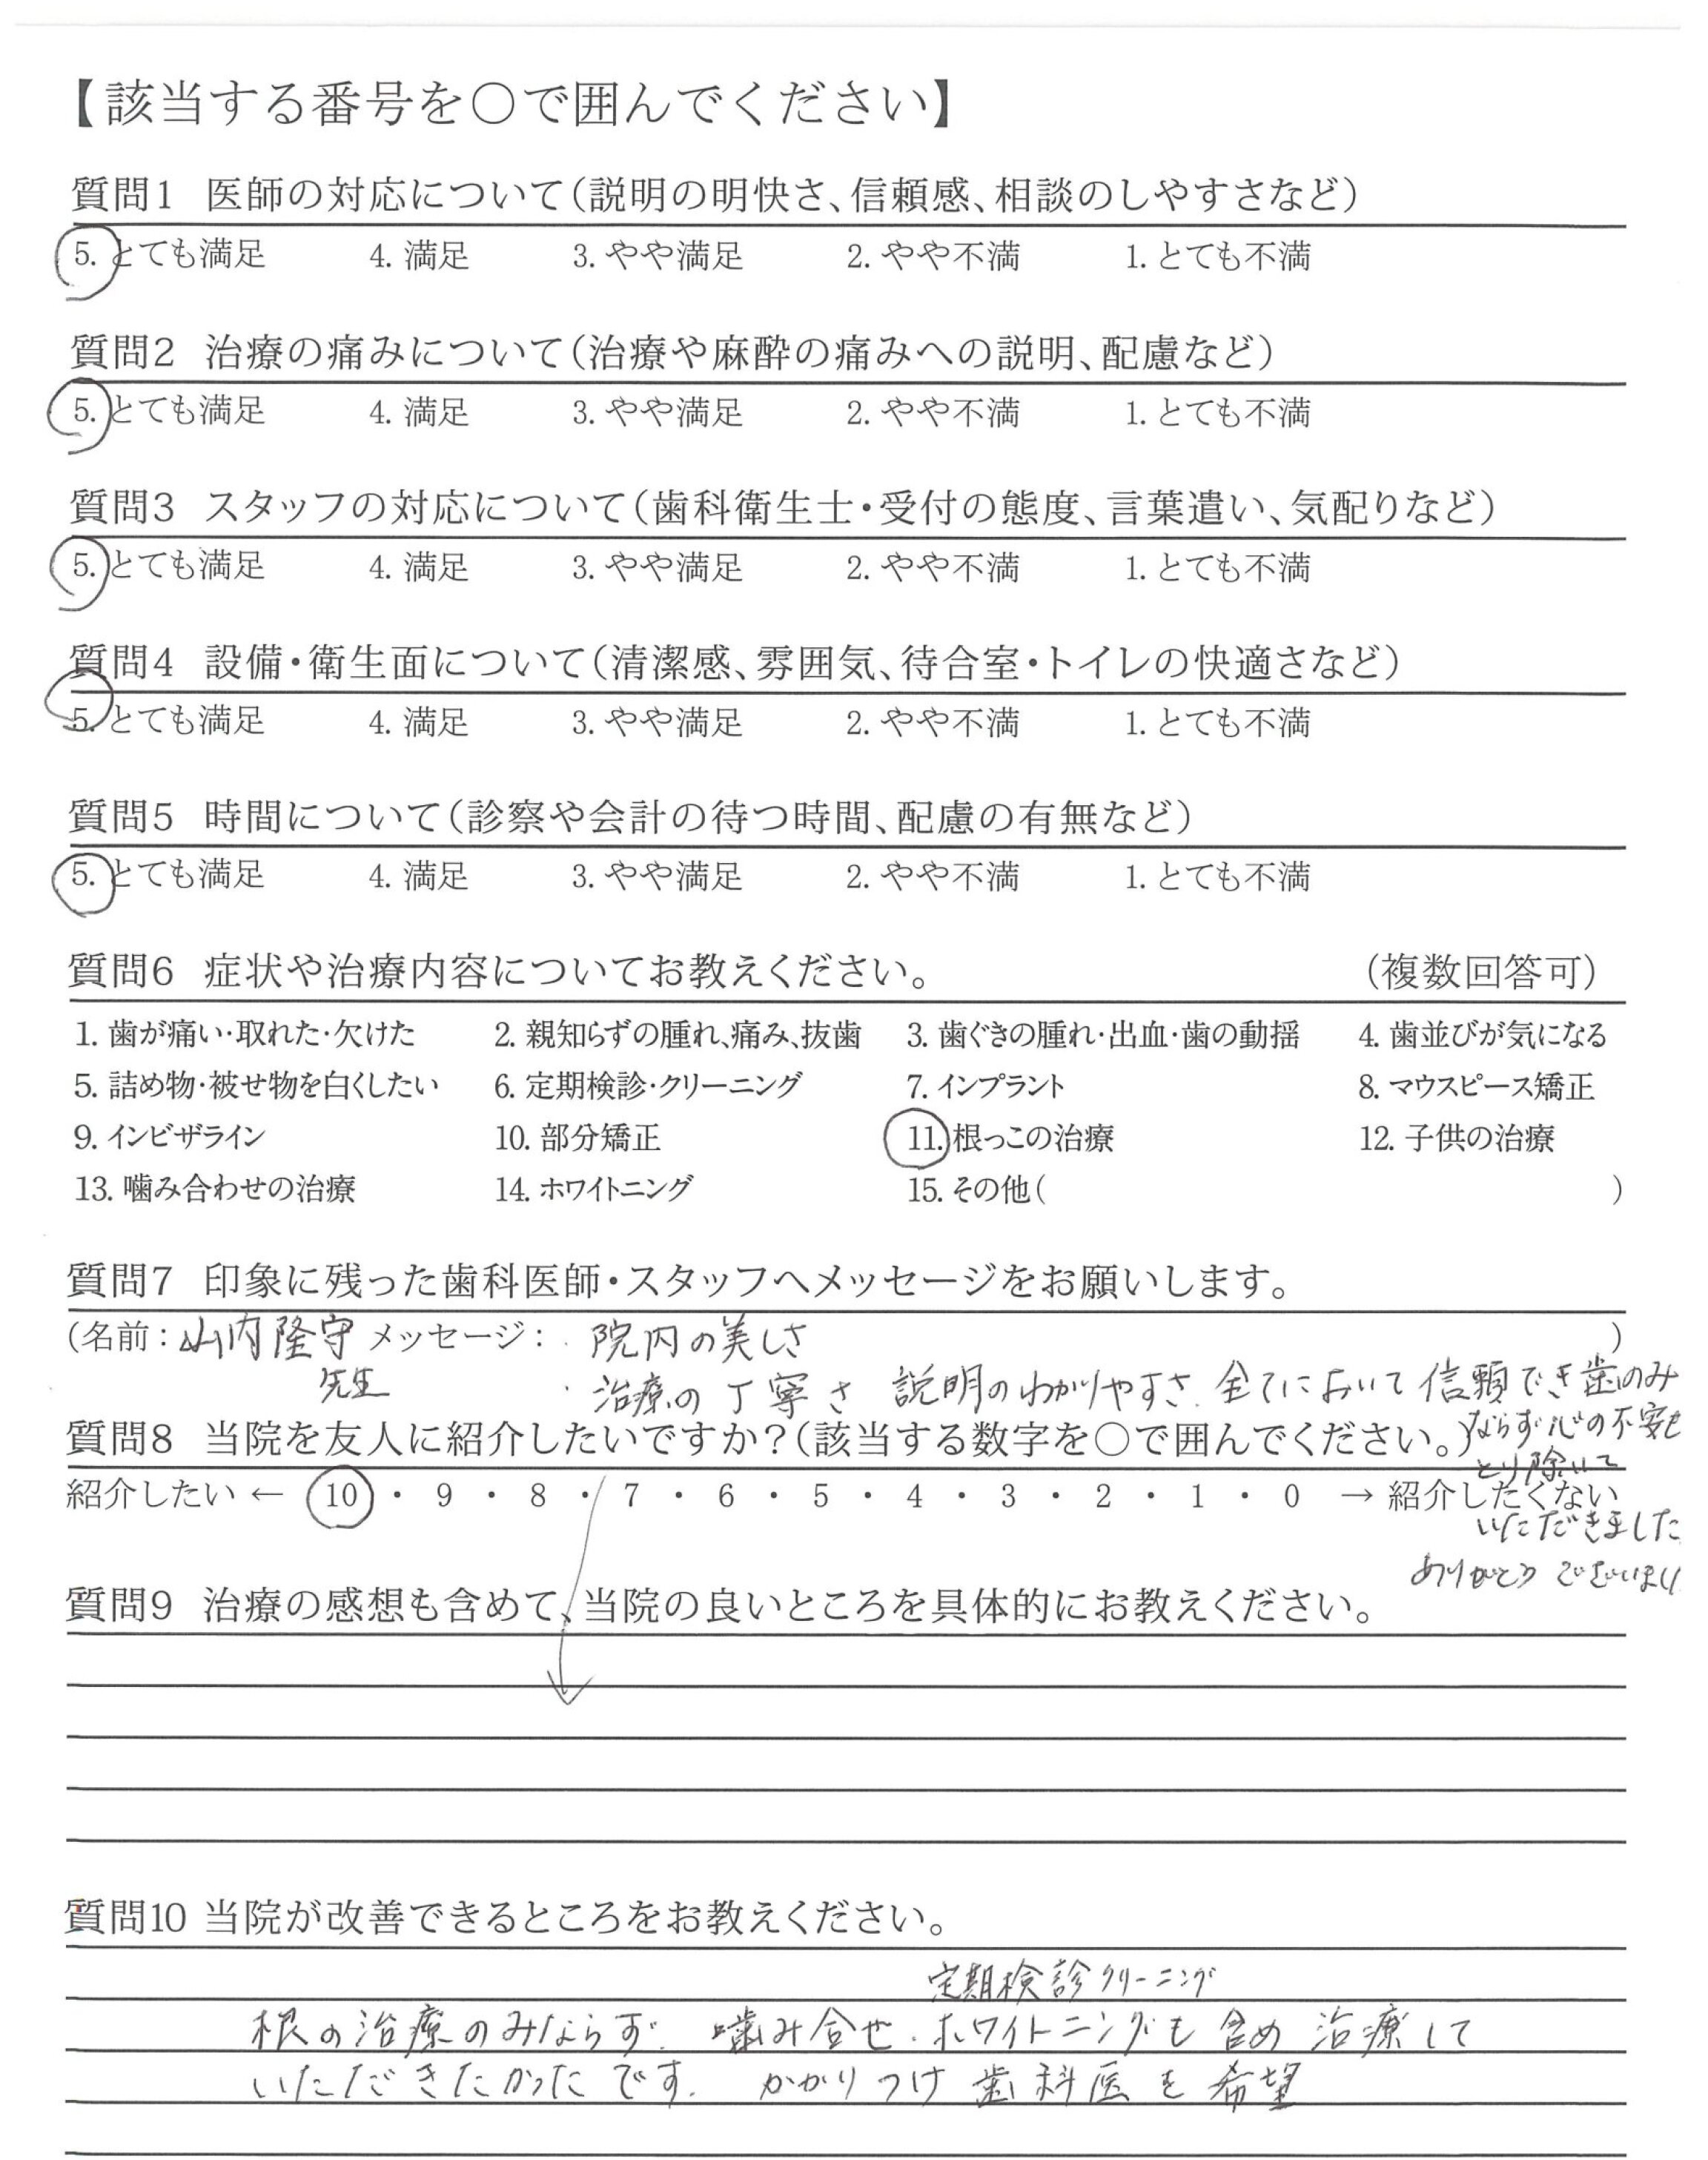 【該当する番号を〇で囲んでください】
質問1 医師の対応について(説明の明快さ、信頼感、相談のしやすさなど)
5. とても満足 4. 満足 3. やや満足 2. やや不満 1. とても不満
質問2 治療の痛みについて(治療や麻酔の痛みへの説明、配慮など)
5. とても満足 4. 満足 3. やや満足 2. やや不満 1. とても不満
質問3 スタッフの対応について(歯科衛生士・受付の態度、言葉遣い、気配りなど)
5. とても満足 4. 満足 3. やや満足 2. やや不満 1. とても不満
質問4 設備・衛生面について(清潔感、雰囲気、待合室・トイレの快適さなど)
5. とても満足 4. 満足 3. やや満足 2. やや不満 1. とても不満
質問5 時間について(診察や会計の待つ時間、配慮の有無など)
5. とても満足 4. 満足 3. やや満足 2. やや不満 1. とても不満
質問6 症状や治療内容についてお教えください。 (複数回答可)
1. 歯が痛い・取れた・欠けた 2. 親知らずの腫れ、痛み、抜歯 3. 歯ぐきの腫れ・出血・歯の動揺 4. 歯並びが気になる
5. 詰め物・被せ物を白くしたい 6. 定期検診・クリーニング 7. インプラント 8. マウスピース矯正
9. インビザライン 10. 部分矯正 11. 根っこの治療 12. 子供の治療
13. 噛み合わせの治療 14. ホワイトニング 15. その他( )
質問7 印象に残った歯科医師・スタッフへメッセージをお願いします。
(名前：山内隆守 メッセージ：・院内の美しさ )
先生 ・治療の丁寧さ 説明のわかりやすさ. 全てにおいて信頼でき歯のみ
ならず心の不安も
とり除いて
いただきました
ありがとうございまし
質問8 当院を友人に紹介したいですか?(該当する数字を〇で囲んでください。)
紹介したい ← 10 ・ 9 ・ 8 ・ 7 ・ 6 ・ 5 ・ 4 ・ 3 ・ 2 ・ 1 ・ 0 → 紹介したくない
質問9 治療の感想も含めて、当院の良いところを具体的にお教えください。
質問10 当院が改善できるところをお教えください。
定期検診クリーニング
根の治療のみならず. 噛み合せ. ホワイトニングも含め治療して
いただきたかったです. かかりつけ歯科医を希望